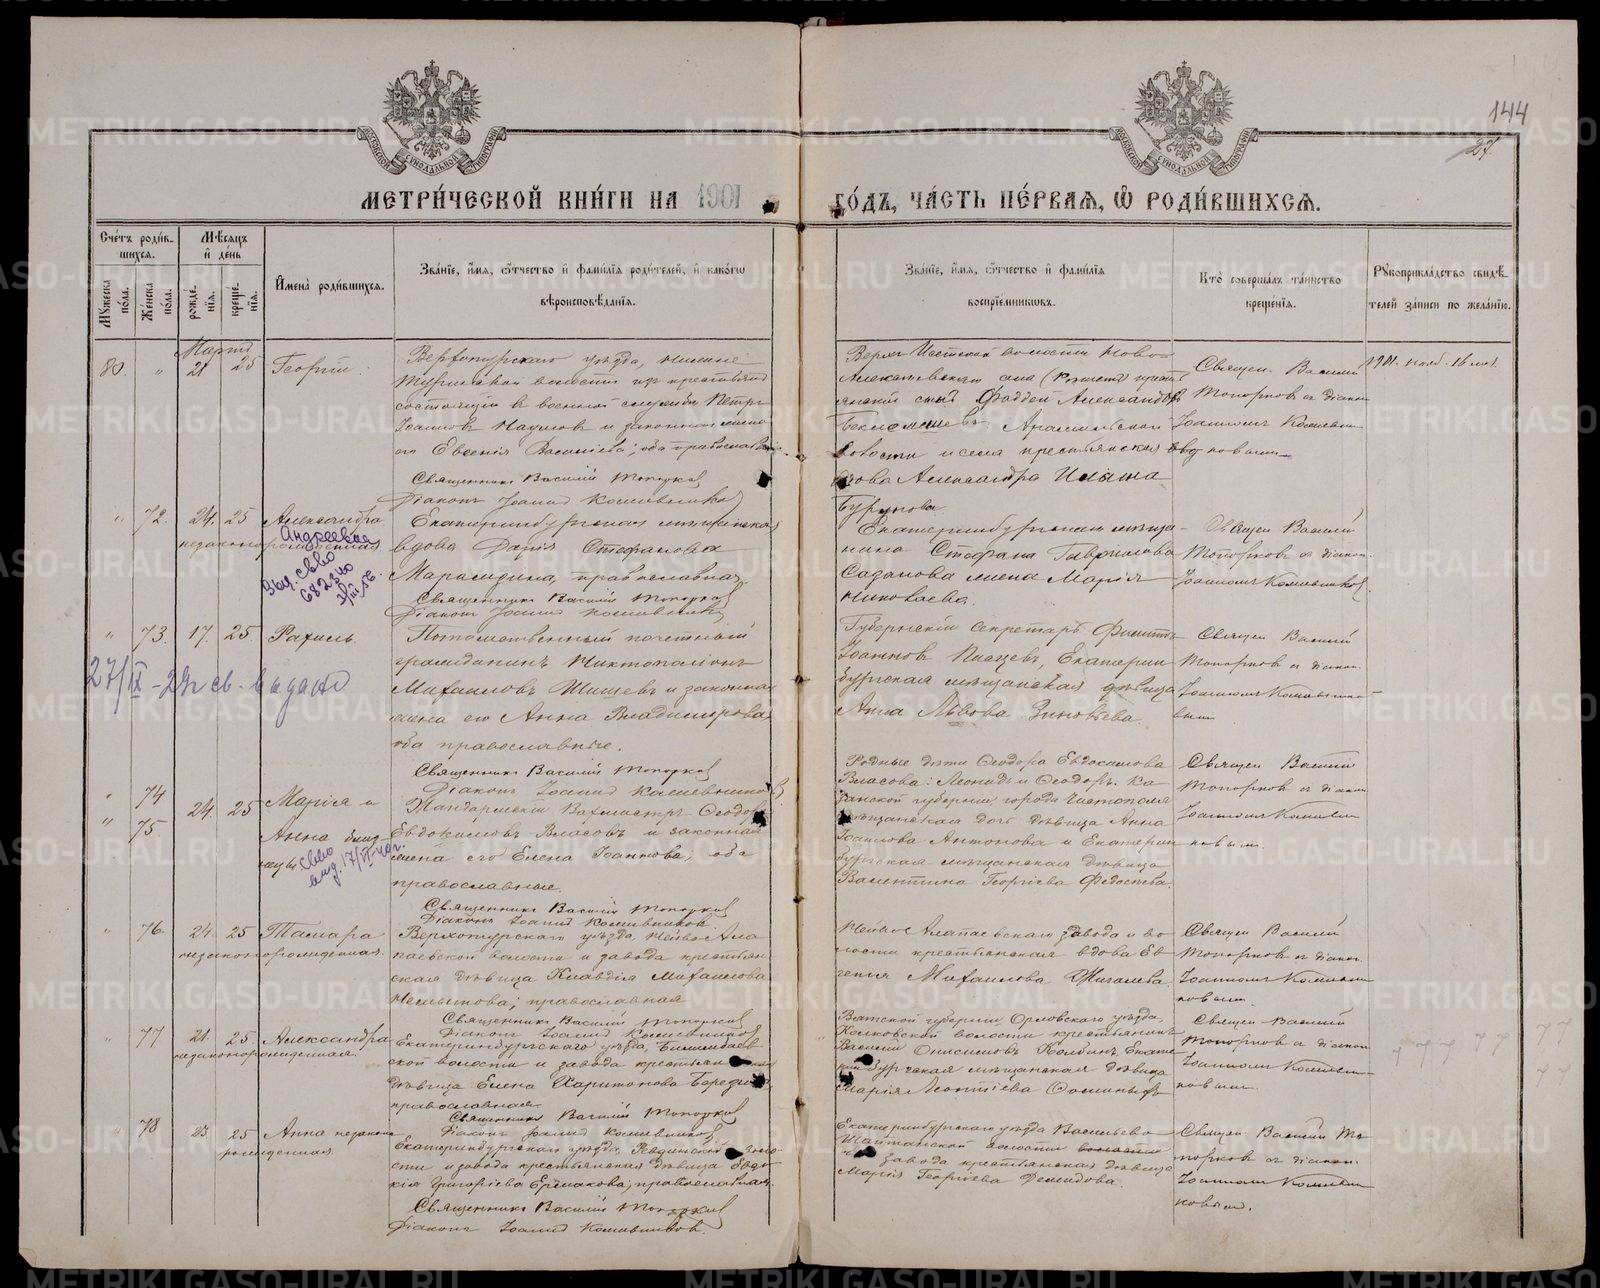 144
27
МОСКОВСКОЙ СѴНОДАЛЬНОЙ ТИПОГРАФІИ
МОСКОВСКОЙ СѴНОДАЛЬНОЙ ТИПОГРАФІИ
МЕТРИ́ЧЕСКОЙ КНИ́ГИ НА 1901
ГО́ДЪ, ЧА́СТЬ ПЕ́РВАЯ, Ѡ РОДИ́ВШИХСЯ.
Сче́тъ роди́в-
шихся.
Мꙋжеска пола.
Женска пола.
Мѣсяцъ
и де́нь
рожде́нія.
креще́нія.
Имена̀ роди́вшихся.
Зва́ніе, и́мя, ѻ҆́тчество и҆ фами́лія роди́телей, и҆ како́гѡ
вѣроисповѣ́данія.
Зва́ніе, и́мя, ѻ҆́тчество и҆ фами́лія
воспріе́мниковъ.
Кто̀ соверша́лъ та́инство
креще́нія.
Рꙋкоприкла́дство свидѣ́-
телей за́писи по жела́нію.
Марта
80. " 21 25 Георгій.
Верхотурскаго уѣзда, Нижне
Туринской волости изъ крестьянъ
состоящій в военной службѣ Петръ
Іоанновъ Наумовъ и законная жена
его Евгенія Васильева; оба православные
Священникъ Василій Топорковъ
Діаконъ Іоаннъ Кошевниковъ
волости Ново-
села крест
янскій сынъ Фаддей Александровъ
Арамильской
волости и села крестьянская вдо
Александра Ильина
Священ. Василій
Топорковъ съ діакон.
Іоанномъ Кошевни-
ковымъ
1901. нояб. 16
" 72. 24. 25 Александра
незаконнорожденная
Андреевна
выд. св-во
Екатеринбургская мѣщанская
вдова Дарія Стефанова
православная.
Священникъ Василій Топорковъ
Діаконъ Іоаннъ Кошевниковъ
Екатеринбургскаго мѣща-
нина Стефана Гаврилова
Сазанова жена Марія
Николаева.
Священ Василій
Топорковъ съ діакон.
Іоанномъ Кошевников
" 73. 17. 25 Рахиль
27/IX - 29г св. выдано
Потомственный почетный
гражданинъ Никтополіонъ
Михаиловъ Шишевъ и законная
жена его Анна Владимірова,
оба православные.
Священникъ Василій Топорковъ
Діаконъ Іоаннъ Кошевниковъ
Губернскій Секретарь Филиппъ
Іоанновъ Екатерин
бургская мѣщанская дѣвица
Анна Львова Зиновьева.
Священ Василій
Топорковъ съ діакон.
Іоанномъ Кошевнико-
вымъ
" 74
" 75. 24. 25 Марія и
Анна близ
нецы
св-во
выд. 17/VI-40г.
Жандармскій Вахмистръ Ѳеодоръ
Евдокимовъ Власовъ и законная
жена его Елена Іоаннова, оба
православные.
Священникъ Василій Топорковъ
Діаконъ Іоаннъ Кошевниковъ
Родные дѣти Ѳеодора Евдокимова
Власова: Леонидъ и Ѳеодоръ. Ка-
занской губерніи, города Чистополя
мѣщанская дочь дѣвица Анна
Іоаннова Антонова и Екатерин
бургская мѣщанская дѣвица
Валентина Георгіева Федосѣева.
Священ Василій
Топорковъ съ діакон
Іоанномъ Кошевни
ковымъ.
" 76. 24. 25 Тамара
незаконнорожденная.
Верхотурскаго уѣзда, Нейво Ала
паевской волости и завода крестьян
ская дѣвица Клавдія Михаилова
православная
Священникъ Василій Топорковъ
Діаконъ Іоаннъ Кошевниковъ
Нейво Алапаевскаго завода и во-
лости крестьянская вдова Ев
генія Михаилова Жигалева.
Священ Василій
Топорковъ съ діакон.
Іоанномъ Кошевни
ковымъ.
" 77 21. 25. Александра
незаконнорожденная.
Екатеринбургскаго уѣзда, Билимбаев
ской волости и завода крестьянская
дѣвица Елена Харитонова
православная.
Священникъ Василій Топорковъ
Діаконъ Іоаннъ Кошевниковъ
Вятской губерніи, Орловскаго уѣзда,
волости крестьянинъ
Василій Онисимовъ Колбинъ, Екате
ринбургская мѣщанская дѣвица
Марія Леонтіева
Священ Василій
Топорковъ съ діакон
Іоанномъ Кошевни-
ковымъ.
" 78 23. 25 Анна незаконно
рожденная.
Екатеринбургскаго уѣзда, Ревдинской воло
сти и завода крестьянская дѣвица Евдо
кія Григоріева Ермакова; православная.
Священникъ Василій Топорковъ
Діаконъ Іоаннъ Кошевниковъ.
Екатеринбургскаго уѣзда Васильево
Шайтанской волости
завода крестьянская дѣвица
Марія Георгіева Демидова.
Священ Василій То
порковъ съ діакон.
Іоанномъ Кошевни
ковым.
METRIKI.GASO-URAL.RU